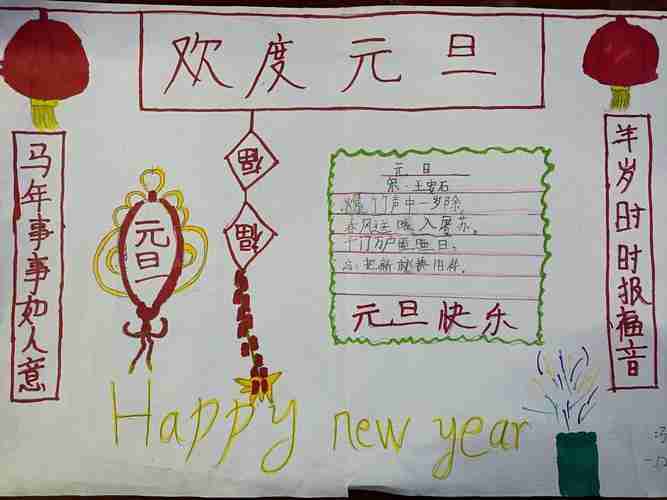 欢度元旦
马年事事如人意
元旦
福
福
元 日
宋·王安石
爆竹声中一岁除,
春风送暖入屠苏。
千门万户曈曈日,
总把新桃换旧符。
元旦快乐
羊岁时时报福音
Happy new year